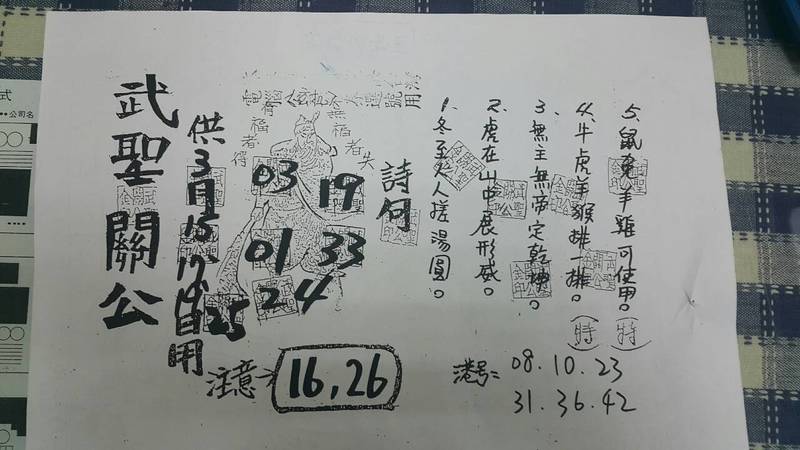 武聖關公
供3月15、17、19日用
電腦
福者得
無福者失
03 19
01 33
24 25
詩句
1. 冬至夫人搓湯圓。
2. 虎在山中展形威。
3. 無主無帝定乾坤。
4. 牛虎羊猴排一排。(特)
5. 鼠兔羊雞可使用。(特)
注意→ 16,26
港号: 08.10.23
31.36.42
公司名
式